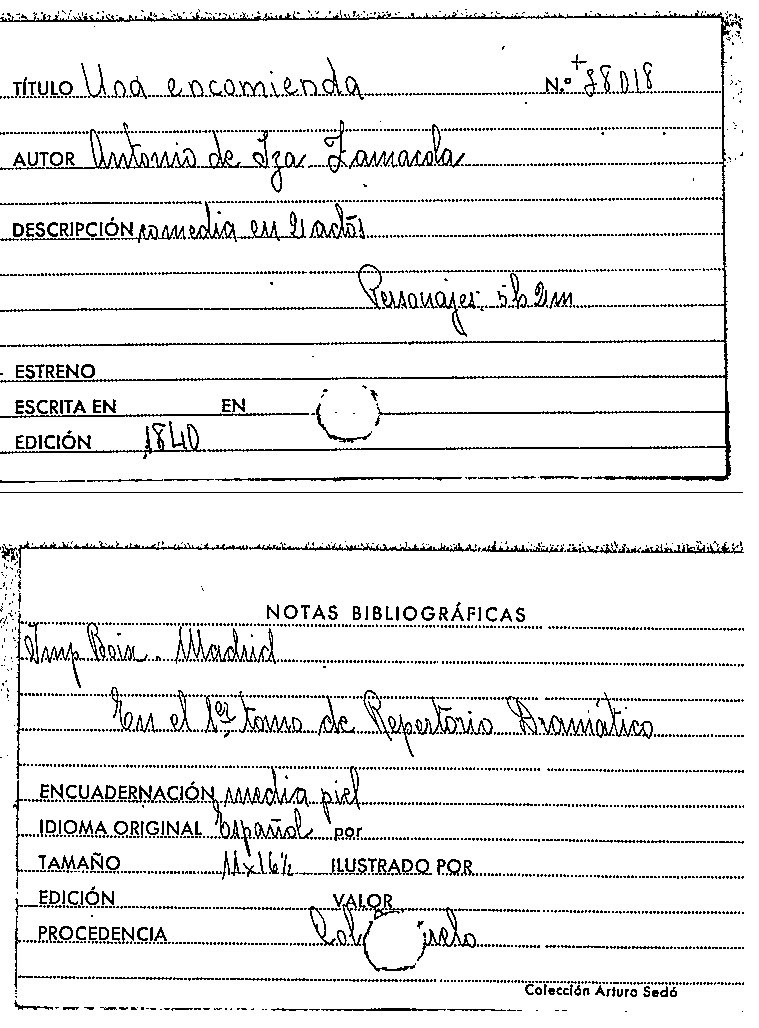 TÍTULO Una encomienda N.º + 78018
AUTOR Antonio de Iza Zamacola
DESCRIPCIÓN comedia en 2 actos
Personajes: 5h 2m
ESTRENO
ESCRITA EN EN
EDICIÓN 1840
NOTAS BIBLIOGRÁFICAS
Imp Boix. Madrid
En el 1er tomo de Repertorio Dramático
ENCUADERNACIÓN media piel
IDIOMA ORIGINAL Español por
TAMAÑO 11x16½ ILUSTRADO POR
EDICIÓN VALOR
PROCEDENCIA
Colección Arturo Sedó